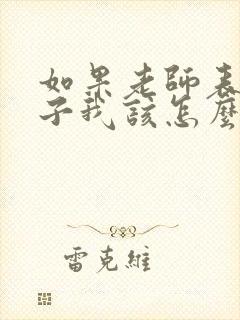 如果老師表
子我該怎麼
雷克維